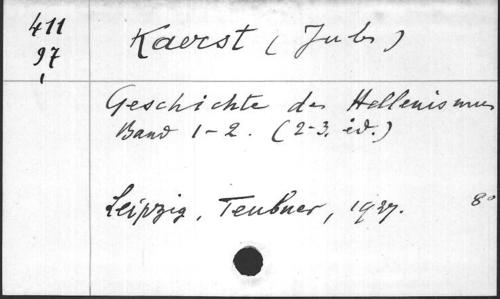 411
97
Kaerst (Jul.)
Geschichte des Hellenismus
Band 1-2. (2-3. éd.)
Leipzig, Teubner, 1927. 8°